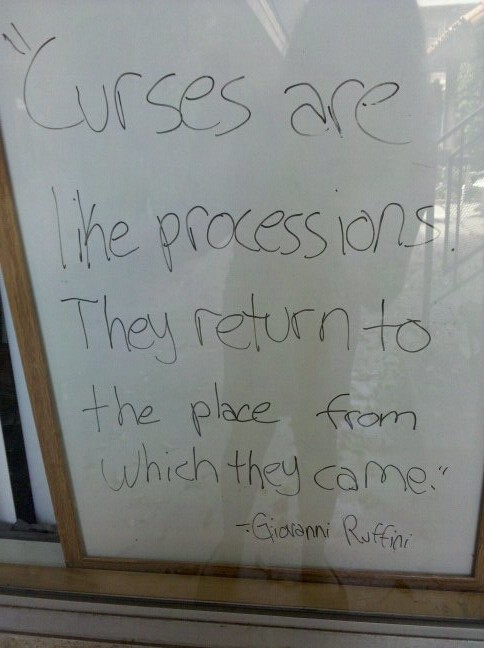 "Curses are
like processions.
They return to
the place from
which they came."
- Giovanni Ruffini